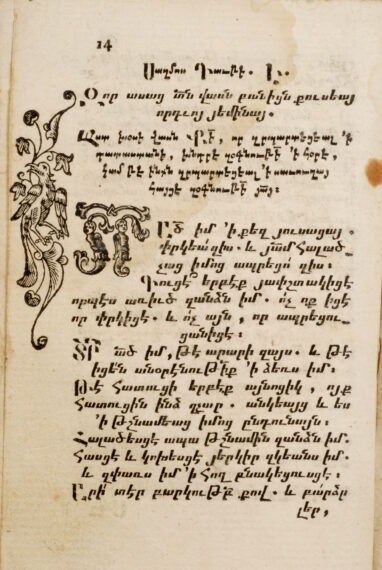 14
Սաղմոս Դաւթի. Է.
Զոր ասաց տն վասն բանիցն քուսեայ
որդւոյ յեմինայ.
խօսի վասն Քի, որ զրպարտեցեալ 'ի
դատաստանի, խնդրէ զօգնութի 'ի հօրէ,
կամ թէ ինքն զրպարտեցեալ 'ի սաւուղայ
հայցէ զօգնութի յայ:
Տր Ած իմ 'ի քեզ յուսացայ.
փրկեա՛ զիս. և յամ հալած_
չաց իմոց ապրեցո՛ զիս:
Գուցէ՛ երբէք յափշտակիցէ
որպէս առիւծ զանձն իմ. ո՛չ ոք իցէ
որ փրկիցէ. և ո՛չ այն, որ ապրեցու_
ցանիցէ:
Տր ած իմ, թէ արարի զայս. և թէ
իցեն անօրէնութիք 'ի ձեռս իմ.
Թէ հատուցի երբէք այնոցիկ, ոյք
հատուցին ինձ զչար. անկեայց և ես
'ի թշնամեաց իմոց ընդունայն:
Հալածեսցէ ապա թշնամին զանձն իմ.
հասցէ և կոխեսցէ յերկիր զկեանս իմ.
և զփառս իմ 'ի հող բնակեցուսցէ:
Արի՛ տէր բարկութբ քով. և բարձր
լեր,